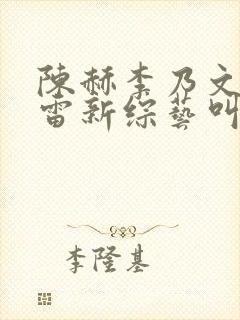 陳赫李乃文
雷新綜藝叫
李隆基